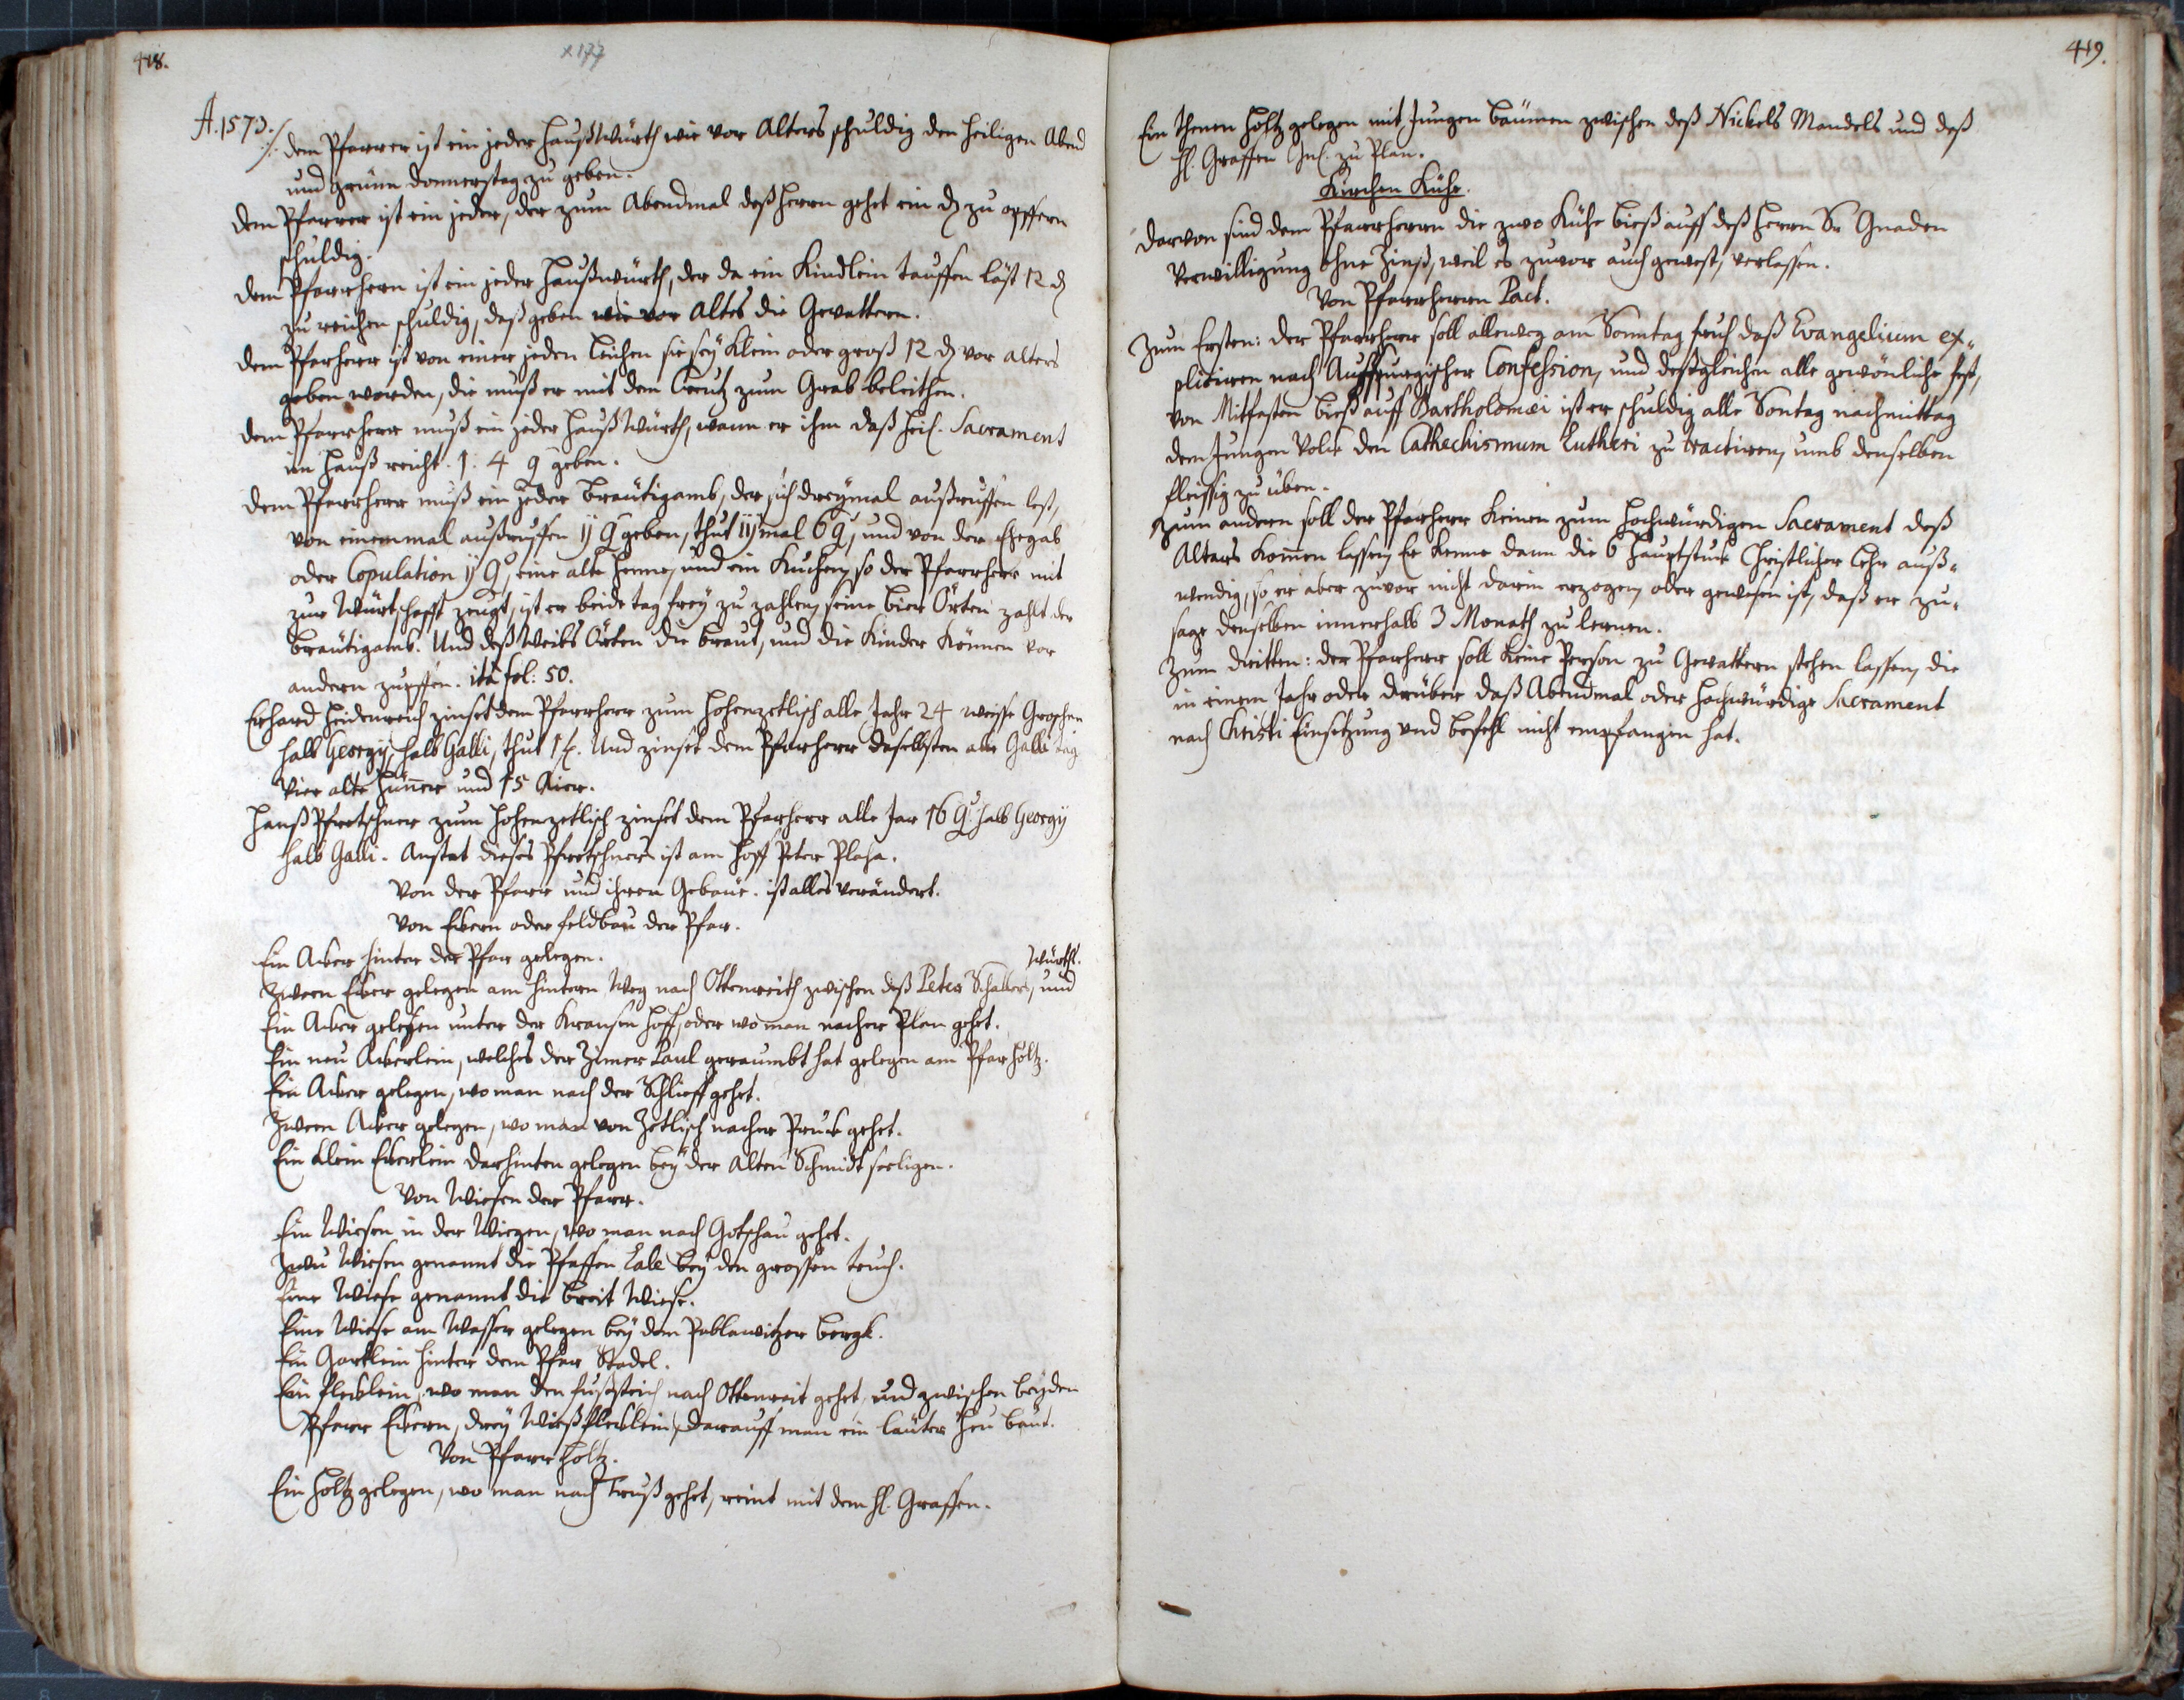 418.
x177
A. 1573.
dem Pfarrer ist ein jeder Haußwürth wie vor Alters schuldig den heiligen Abend
und grünn donnerstag zu geben.
dem Pfarrer ist ein jeder, der zum Abendmal deß Herrn gehet ein ₰ zu opffern
schuldig.
dem Pfarrherrn ist ein jeder Haußwürth, der da ein Kindlein tauffen läst 12 ₰
zu reichen schuldig, daß geben wie vor Altes die Gevattern.
dem Pfarherr ist von einer jeden Leichen sie seÿ klein oder groß 12 ₰ vor alters
geben worden, die muß er mit dem Creutz zum Grab beleithen.
dem Pfarrherr muß ein jeder Haußwürth, wann er ihm daß heil. Sacrament
im Hauß reicht. 1. 4 g geben.
dem Pfarrherr muß ein jeder Bräutigamb, der sich dreÿmal außruffen lest,
von einemmal außruffen ij g geben, thut iij mal 6 g, und von der Ehegab
oder Copulation ij g, eine alte Henne, und ein Kuchen, so der Pfarrherr mit
zur Würtschafft zeugt, ist er beide tag freÿ zu zahlen, seine bier Örten zahlt der
Bräutigamb. Und deß Weibs Örten die Braut, und die Kinder können vor
andern zupffen. ita fol: 50.
Erhard Heidenreich zinset dem Pfarrherr zum Hohenzetlisch alle Jahr 24 weisse Groschen
halb Georgÿ, halb Galli, thut 1 fl. Und zinset dem Pfarherr daselbsten alle Galli tag
vier alte Hünner und 15 Aier.
Hanß Pfretschner zum Hohenzetlisch zinset dem Pfarherr alle Jar 16 g. halb Georgÿ
halb Galli. Anstat dieses Pfretschners ist am Hoff Peter Plaha.
Von der Pfarr und ihren Gebäue. ist alles verändert.
Von Eckern oder feldbau der Pfar.
Ein Acker hinter der Pfar gelegen.
Würths.
Zween Ecker gelegen am hintern Weg nach Ottenreith zwischen deß Peter Schallers, und
Ein Acker gelegen unter der Kransen Hoff, oder wo man nacher Plan gehet.
Ein neu Ackerlein, welches der Zimer Paul geraumbt hat gelegen am Pfar Holtz.
Ein Acker gelegen, wo man nach der Schlieff gehet.
Zween Acker gelegen, wo man von Zetlisch nacher Pruck gehet.
Ein klein Eckerlein darhinten gelegen beÿ der Alten Schmidt seeligen.
Von Wiesen der Pfarr.
Ein Wiesen in der Wiezen, wo man nach Gotschau gehet.
Zwu Wiesen genannt die Pfaffen Lale beÿ den grossen teuch.
Eine Wiese genannt die breit Wiese.
Eine Wiese am Wasser gelegen beÿ dem Pablawitzer bergk.
Ein Gartlein hinter dem Pfar Stadel.
Ein flecklein, wo man den fußsteich nach Ottenreit gehet, und zwischen beÿden
Pfarr Eckern, dreÿ Wießflecklein, darauff man ein lauter Heu baut.
Von Pfarrholtz.
Ein Holtz gelegen, wo man nach Truß gehet, reint mit dem H. Graffen.
419.
Ein Holtz gelegen mit Jungen bäumen zwischen deß Nickels Mandels und deß
H. Graffen zu Plan.
Kirchen Kühe.
Darvon sind dem Pfarrherrn die zwo Kühe bieß auff deß Herrn Sr Gnaden
Verwilligung ohne Zinß, weil es zuvor auch gewest, verlassen.
Von Pfarrherrn Pact.
Zum Ersten: der Pfarrherr soll alleweg am Sonntag früh daß Evangelium ex-
pliciren nach Augspurgischer Confession, und deßgleichen alle gewönliche fest,
von Mitfasten bieß auff Bartholomæi ist er schuldig alle Sontag nachmittag
dem Jungen Volck den Cathechismum Lutheri zu tractiren, umb denselben
fleissig zu üben.
Zum andern soll der Pfarherr keinen zum hochwürdigen Sacrament deß
Altars kommen lassen, Er kenne dann die 6 Hauptstuck Christlicher Lehr auß-
wendig, so er aber zuvor nicht darin erzogen, oder gewesen ist, daß er zu-
sage denselben innerhalb 3 Monath zu lernen.
Zum dritten: der Pfarherr soll keine Person zu Gevattern stehen lassen, die
in einem Jahr oder drüber daß Abendmal oder hochwürdige Sacrament
nach Christi Einsetzung und befehl nicht empfangen hat.